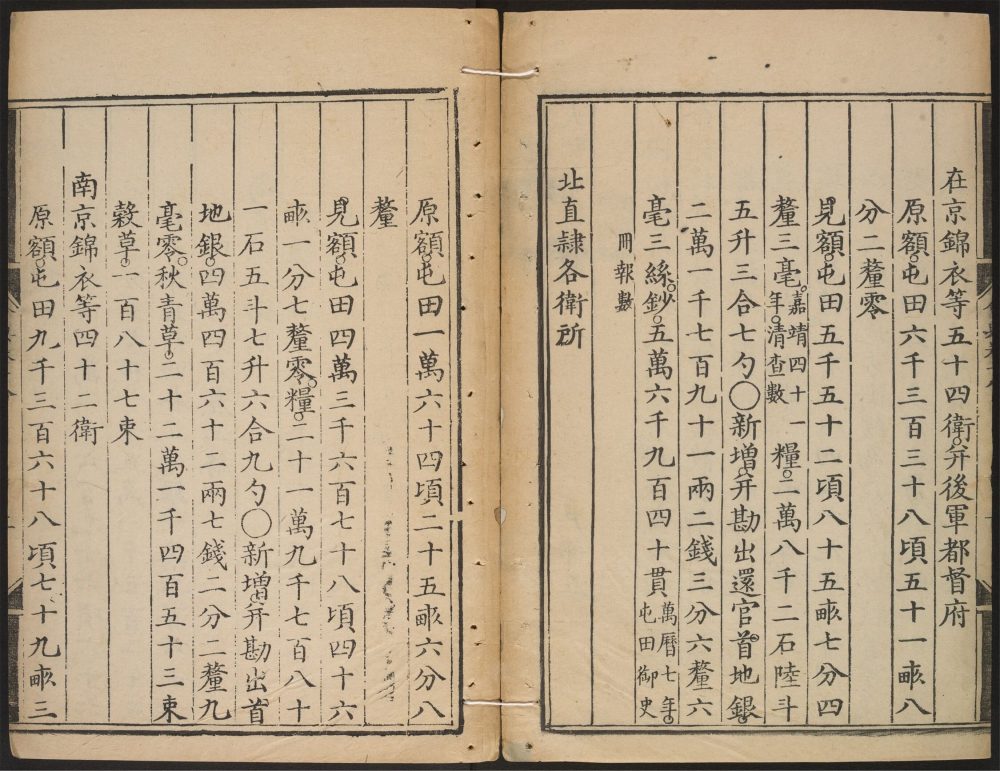 在京錦衣等五十四衛并後軍都督府
原額屯田六千三百三十八頃五十一畝八
分二釐零
見額屯田五千五十二頃八十五畝七分四
釐三毫嘉靖四十一年清查數糧二萬八千二石陸斗
五升三合七勺〇新增并勘出還官首地銀
二萬一千七百九十一兩二錢三分六釐六
毫三絲鈔五萬六千九百四十貫萬曆七年屯田御史
冊報數
北直隸各衛所
原額屯田一萬六十四頃二十五畝六分八
釐
見額屯田四萬三千六百七十八頃四十六
畝一分七釐零糧二十一萬九千七百八十
一石五斗七升六合九勺〇新增并勘出首
地銀四萬四百六十二兩七錢二分二釐九
毫零秋青草二十二萬一千四百五十三束
穀草一百八十七束
南京錦衣等四十二衛
原額屯田九千三百六十八頃七十九畝三